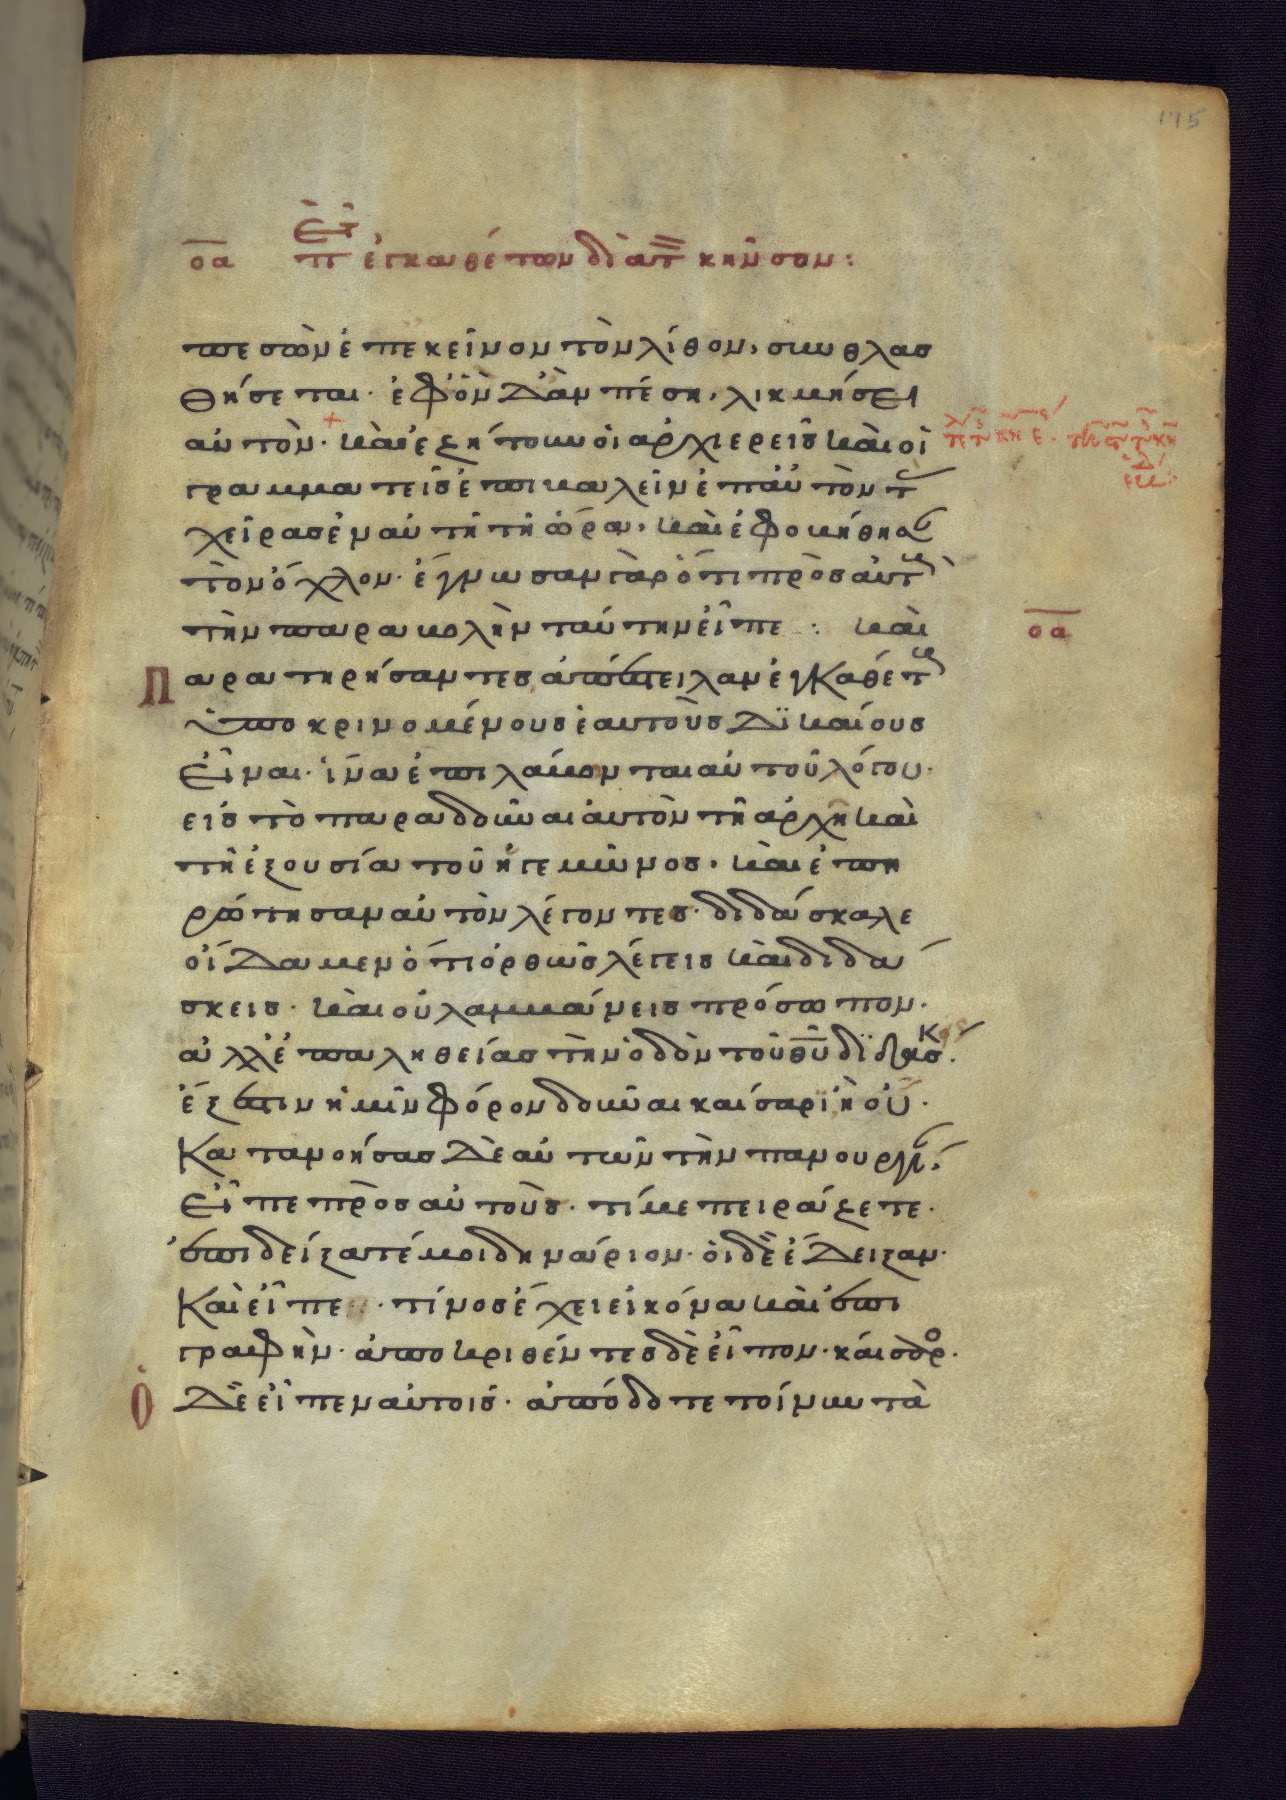 175
οα π ἐγκαθέτων διὰ τ κῆνσον:
πεσὼν ἐπ ἐκεῖνον τὸν λίθον, συνθλασ
θήσεται· ἐφ ὃν δ ἂν πέση, λικμήσει
αὐτὸν· καὶ ἐζήτουν οἱ ἀρχιερεῖς καὶ οἱ
γραμματεῖς ἐπιβαλεῖν ἐπ αὐτὸν τ
χεῖρας ἐν αὐτῆ τῆ ὥρα, καὶ ἐφοβήθησ
τὸν ὄχλον· ἔγνωσαν γὰρ ὅτι πρὸς αὐτ
τὴν παραβολὴν ταύτην εἶπε : καὶ
οα
Παρατηρήσαντες ἀπέστειλαν ἐγκαθέτ
ὑποκρινομένους ἑαυτοὺς δικαίους
εἶναι· ἵνα ἐπιλάβονται αὐτοῦ λόγου·
εἰς τὸ παραδοῦναι αὐτὸν τῆ ἀρχῆ καὶ
τῆ ἐξουσία τοῦ ἡγεμῶνος. καὶ ἐπη
ρώτησαν αὐτὸν λέγοντες· διδάσκαλε
οἴδαμεν ὅτι ὀρθῶς λέγεις καὶ διδά
σκεις· καὶ οὐ λαμβάνεις πρόσωπον·
ἀλλ ἐπ ἀληθείας τὴν ὁδὸν τοῦ θῦ διδάσκ·
ἔξεστιν ἡμῖν φόρον δοῦναι καίσαρι ἢ οὔ·
Κατανοήσας δὲ αὐτῶν τὴν πανουργί·
εἶπε πρὸς αὐτούς· τί με πειράζετε·
ἐπιδείξατέ μοι δηνάριον· οἱ δὲ ἔδειξαν·
Καὶ εἶπε · τίνος ἔχει εἰκόνα καὶ ἐπι
γραφὴν· ἀποκριθέντες δὲ εἶπον· καίσαρο·
Ὁ δὲ εἶπεν αὐτοῖς· ἀπόδοτε τοίνυν τὰ